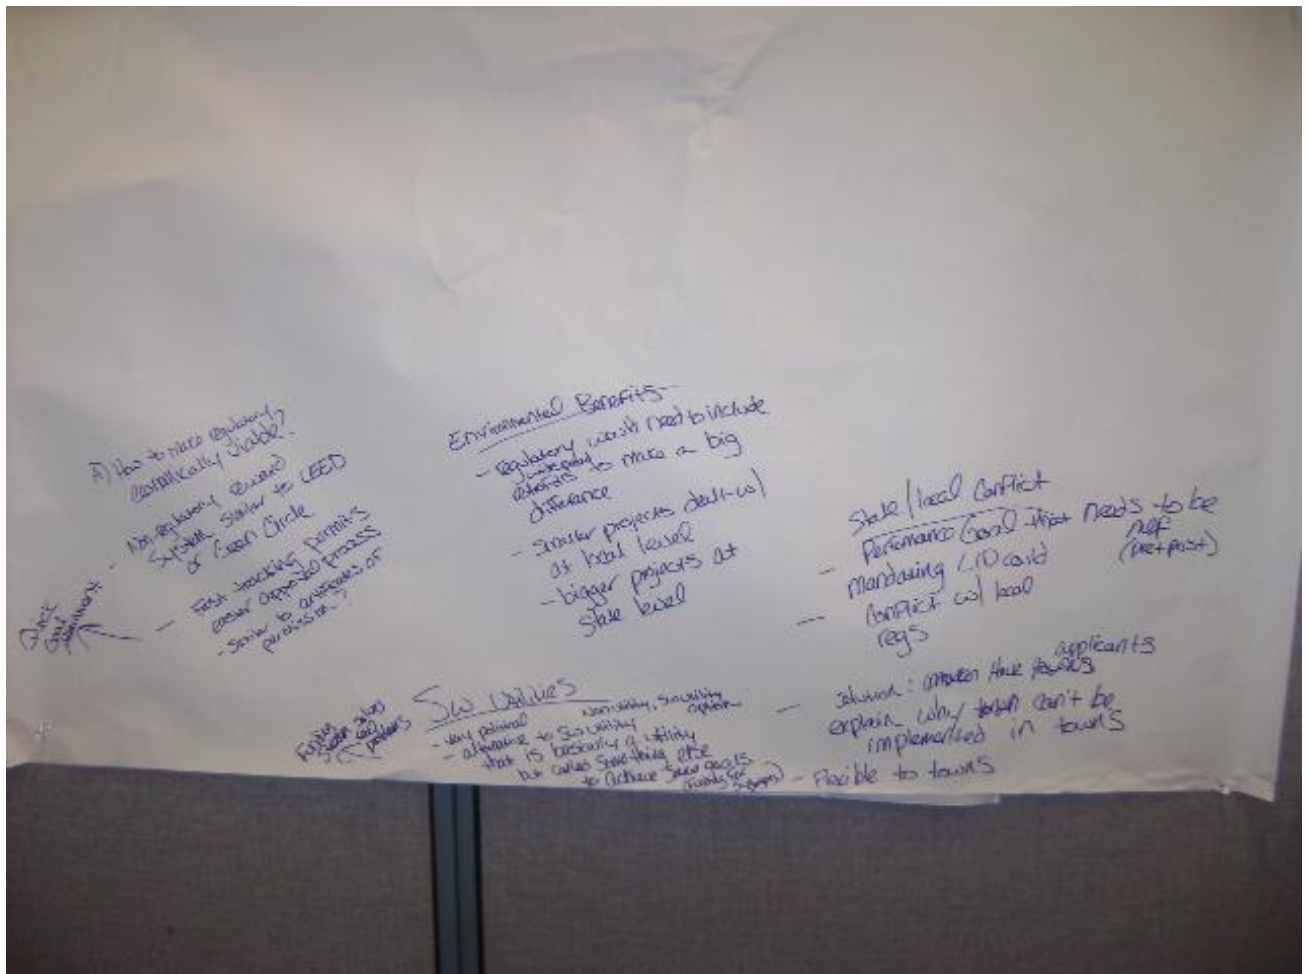 A) How to make regulatory
economically viable?
- Non-regulatory reward
system similar to LEED
or Green Circle
- Fast tracking permits
easier approval process
- Similar to certificates of
permission?
Quick
Goal
Environmental Benefits-
- regulatory would need to include
retrofits to make a big
difference
- smaller projects dealt w/
at local level
- bigger projects at
state level
State/local Conflict
- Performance Goal that needs to be
met
(pre + post)
mandating LID could
- Conflict w/ local
regs
- Solution: have applicants
explain why can't be
implemented in towns
- Flexible to towns
SW Utilities
- very political
- alternative to SW utility
that is basically a utility
but called something else
to achieve same goals
Non utility, SW utility
option
problems